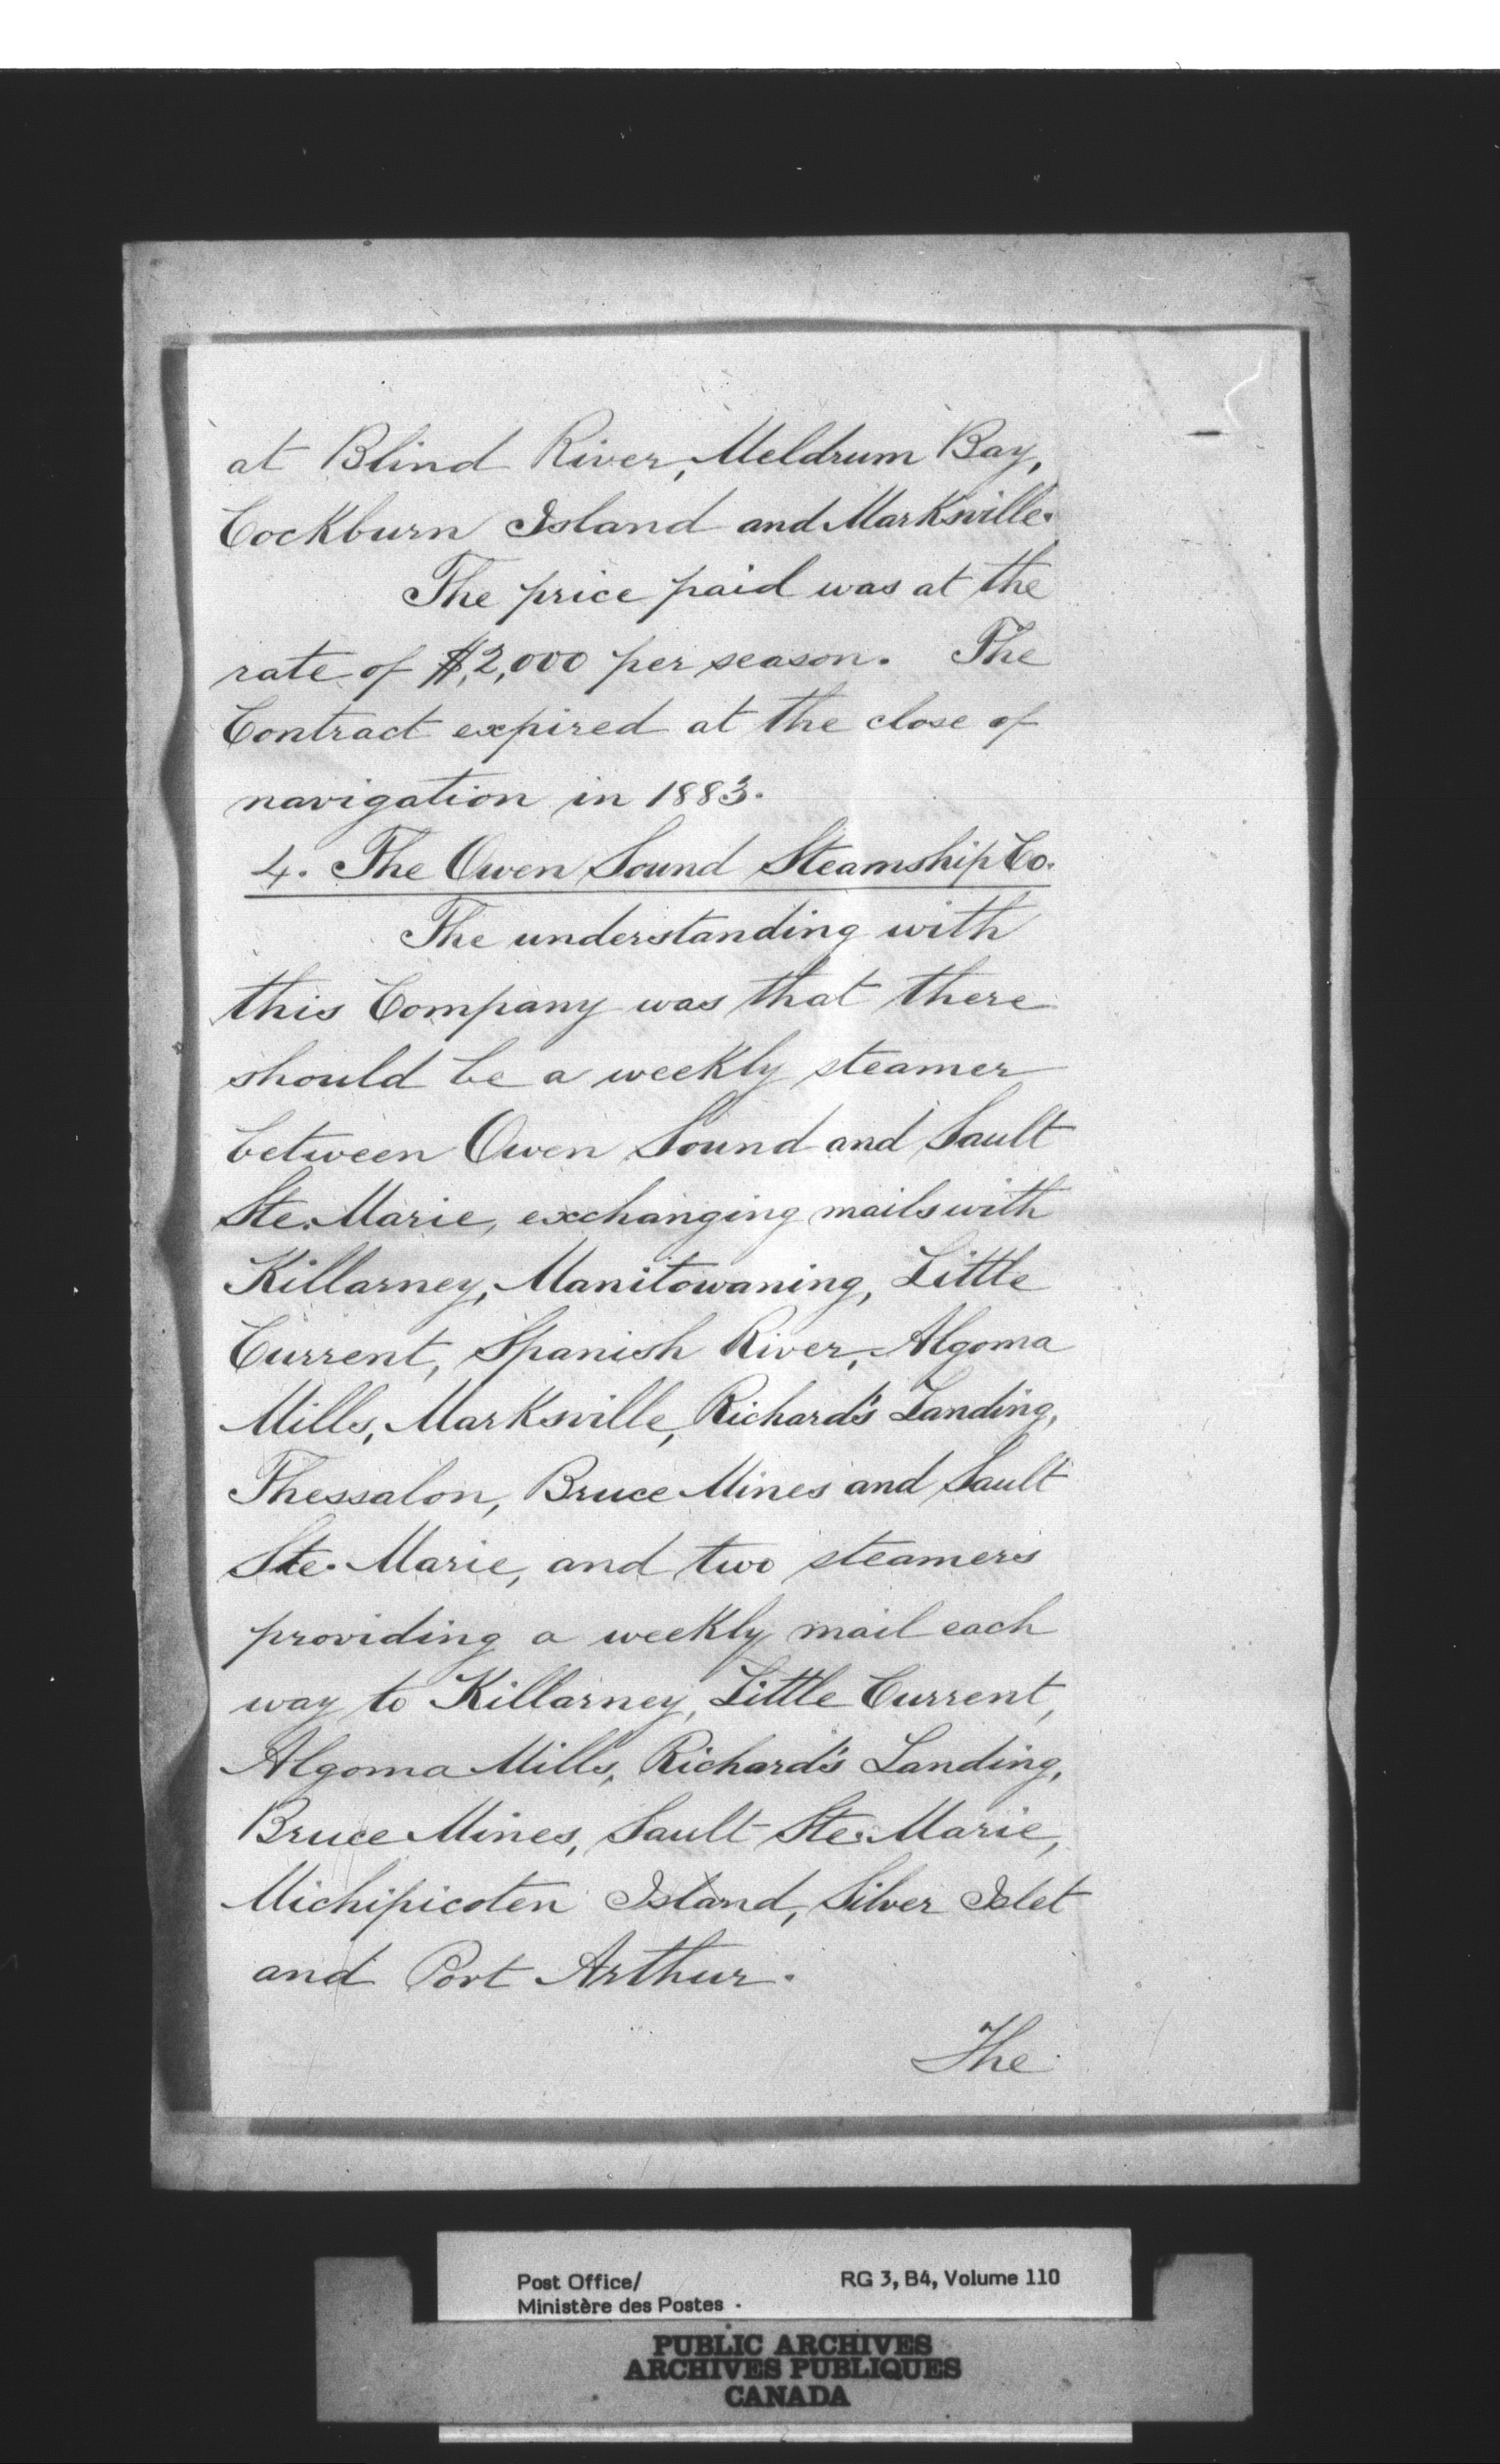 at Blind River, Meldrum Bay,
Cockburn Island and Marksville.
The price paid was at the
rate of $2,000 per season. The
Contract expired at the close of
navigation in 1883.
4. The Owen Sound Steamship Co.
The understanding with
this Company was that there
should be a weekly steamer
between Owen Sound and Sault
Ste. Marie, exchanging mails with
Killarney, Manitowaning, Little
Current, Spanish River, Algoma
Mills, Marksville, Richard's Landing,
Thessalon, Bruce Mines and Sault
Ste. Marie, and two steamers
providing a weekly mail each
way to Killarney, Little Current,
Algoma Mills, Richard's Landing,
Bruce Mines, Sault Ste. Marie,
Michipicoten Island, Silver Islet
and Port Arthur.
The
Post Office/ RG 3, B4, Volume 110
Ministère des Postes
PUBLIC ARCHIVES
ARCHIVES PUBLIQUES
CANADA